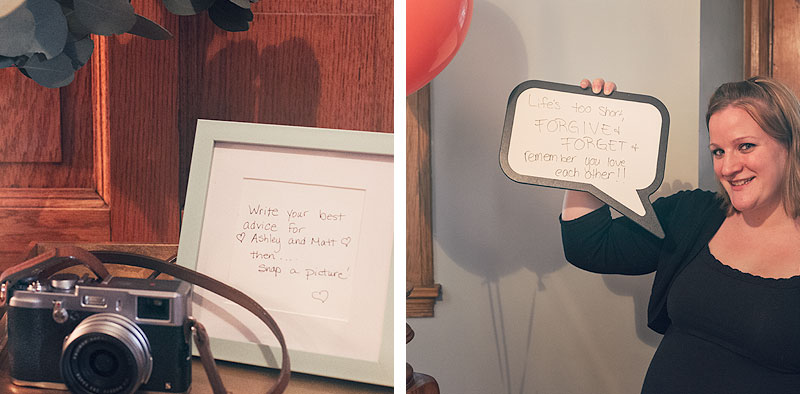 Write your best
advice for
♡ Ashley and Matt ♡
then....
Snap a picture!
♡
Life's too short,
FORGIVE &
FORGET &
remember you love
each other!!